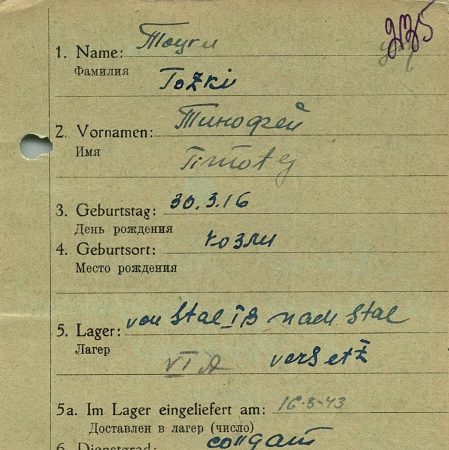 235
1. Name: Тоуки
Фамилия Tozki
2. Vornamen: Тимофей
Имя Timotej
3. Geburtstag: 30.3.16
День рождения
4. Geburtsort: Козли
Место рождения
5. Lager: von Stal IB nach Stal
Лагер VI A versetz
5a. Im Lager eingeliefert am: 16-8-43
Доставлен в лагер (число)
6. Dienstgrad: солдат